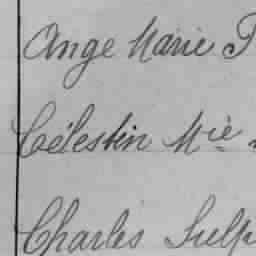 Ange Marie
Célestin Mie
Charles Sulp